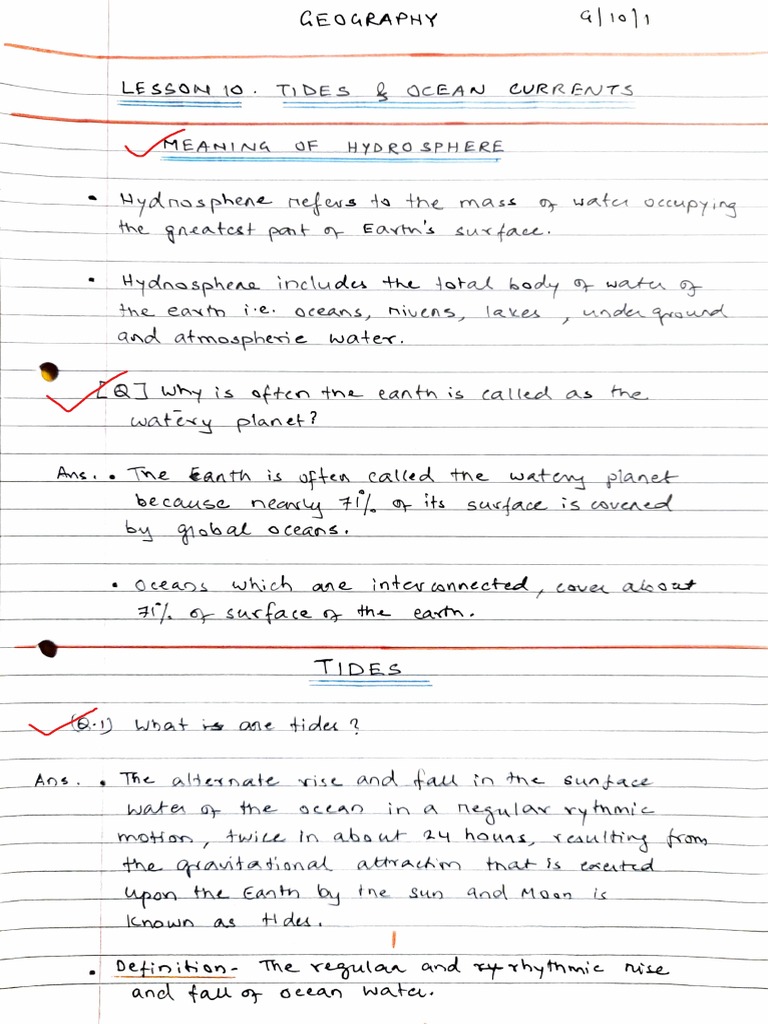 GEOGRAPHY G/10/1
LESSON 10. TIDES & OCEAN CURRENTS
MEANING OF HYDROSPHERE
• Hydrosphere refers to the mass of water occupying
the greatest part of Earth's surface.
• Hydrosphere includes the total body of water of
the earth i.e. oceans, rivers, lakes, underground
and atmospheric water.
[Q] Why is often the earth is called as the
watery planet?
Ans. • The Earth is often called the watery planet
because nearly 71% of its surface is covered
by global oceans.
• Oceans which are interconnected, cover about
71% of surface of the earth.
TIDES
(Q.1) What is are tides?
Ans. • The alternate rise and fall in the surface
water of the ocean in a regular rythmic
motion, twice in about 24 hours, resulting from
the gravitational attraction that is exerted
upon the Earth by the sun and Moon is
known as tides.
• Definition- The regular and ry rhythmic rise
and fall of ocean water.